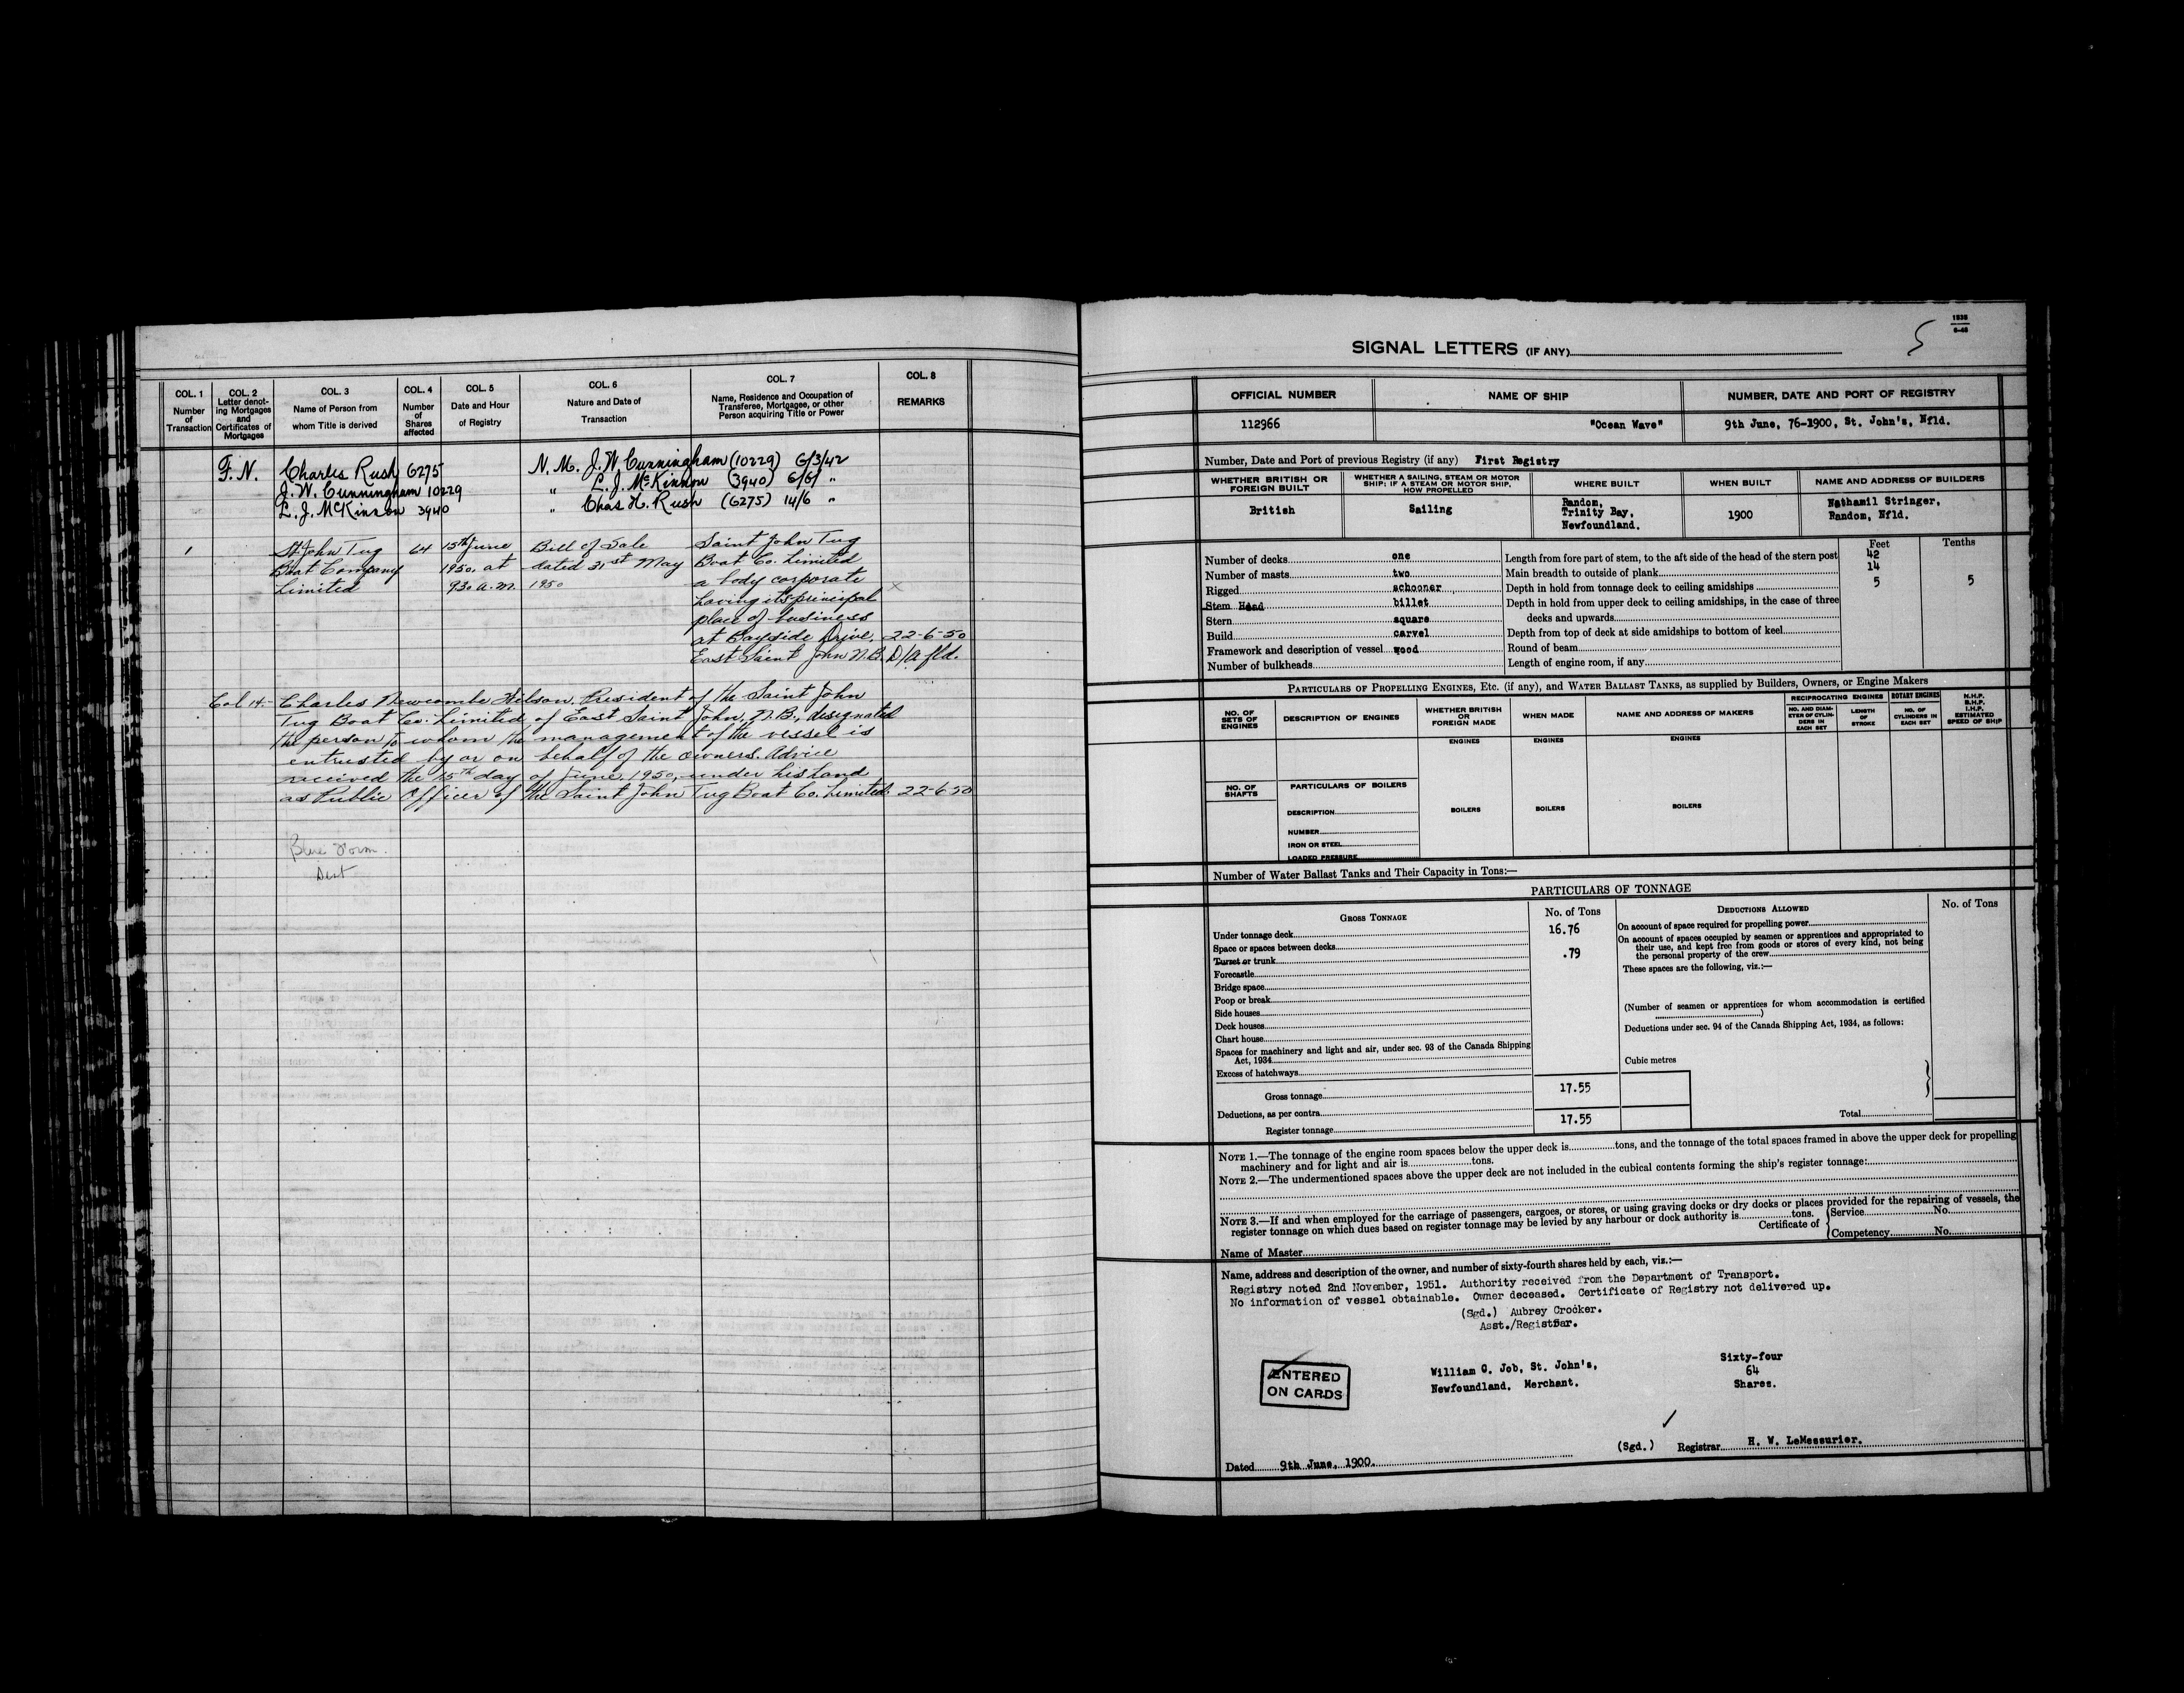 COL. 1
Number
of
Transaction
COL. 2
Letter denot-
ing Mortgages
and
Certificates of
Mortgages
COL. 3
Name of Person from
whom Title is derived
COL. 4
Number
of
Shares
affected
COL. 5
Date and Hour
of Registry
COL. 6
Nature and Date of
Transaction
COL. 7
Name, Residence and Occupation of
Transferee, Mortgagee, or other
Person acquiring Title or Power
COL. 8
REMARKS
F. N. Charles Rush 6275 N. M. J. W. Cunningham (10229) 6/3/42
J. W. Cunningham 10229 " L. J. McKinnon (3940) 6/6/ "
L. J. McKinnon 3940 " Chas H. Rush (6275) 14/6 "
1 St. John Tug 64 15th June Bill of Sale Saint John Tug
Boat Company 1950, at dated 31st May Boat Co. Limited
Limited 9.30 a.m. 1950 a body corporate x
having its principal
place of business
at Bayside Drive, 22-6-50
East Saint John N.B. D/A fld.
Col 14:- Charles Newcombe Wilson, President of the Saint John
Tug Boat Co. Limited, of East Saint John, N.B., designated
the person to whom the management of the vessel is
entrusted by or on behalf of the owners. Advice
received the 15th day of June, 1950, under his hand
as Public Officer of the Saint John Tug Boat Co. Limited. 22-6-50
Blue Form.
1535
6-46
5
SIGNAL LETTERS (IF ANY)
OFFICIAL NUMBER
NAME OF SHIP
NUMBER, DATE AND PORT OF REGISTRY
112966
"Ocean Wave"
9th June, 76-1900, St. John's, Nfld.
Number, Date and Port of previous Registry (if any) First Registry
WHETHER BRITISH OR
FOREIGN BUILT
WHETHER A SAILING, STEAM OR MOTOR
SHIP; IF A STEAM OR MOTOR SHIP,
HOW PROPELLED
WHERE BUILT
WHEN BUILT
NAME AND ADDRESS OF BUILDERS
British
Sailing
Random,
Trinity Bay,
Newfoundland.
1900
Nathamil Stringer,
Random, Nfld.
Feet Tenths
Number of decks one
Number of masts two
Rigged schooner
Stem Head billet
Stern square
Build carvel
Framework and description of vessel wood
Number of bulkheads
Length from fore part of stem, to the aft side of the head of the stern post 42
Main breadth to outside of plank 14
Depth in hold from tonnage deck to ceiling amidships 5 5
Depth in hold from upper deck to ceiling amidships, in the case of three
decks and upwards
Depth from top of deck at side amidships to bottom of keel
Round of beam
Length of engine room, if any
PARTICULARS OF PROPELLING ENGINES, ETC. (if any), and WATER BALLAST TANKS, as supplied by Builders, Owners, or Engine Makers
NO. OF
SETS OF
ENGINES
DESCRIPTION OF ENGINES
WHETHER BRITISH
OR
FOREIGN MADE
WHEN MADE
NAME AND ADDRESS OF MAKERS
RECIPROCATING ENGINES
NO. AND DIAM-
ETER OF CYLIN-
DERS IN
EACH SET
LENGTH
OF
STROKE
ROTARY ENGINES
NO. OF
CYLINDERS IN
EACH SET
N.H.P.
B.H.P.
I.H.P.
ESTIMATED
SPEED OF SHIP
ENGINES ENGINES ENGINES
NO. OF
SHAFTS
PARTICULARS OF BOILERS
DESCRIPTION
BOILERS BOILERS BOILERS
NUMBER
IRON OR STEEL
LOADED PRESSURE
Number of Water Ballast Tanks and Their Capacity in Tons:—
PARTICULARS OF TONNAGE
GROSS TONNAGE
No. of Tons
Under tonnage deck 16.76
Space or spaces between decks
Turret or trunk .79
Forecastle
Bridge space
Poop or break
Side houses
Deck houses
Chart house
Spaces for machinery and light and air, under sec. 93 of the Canada Shipping
Act, 1934
Excess of hatchways
Gross tonnage 17.55
Deductions, as per contra
Register tonnage 17.55
DEDUCTIONS ALLOWED
No. of Tons
On account of space required for propelling power
On account of spaces occupied by seamen or apprentices and appropriated to
their use, and kept free from goods or stores of every kind, not being
the personal property of the crew
These spaces are the following, viz.:—
(Number of seamen or apprentices for whom accommodation is certified
)
Deductions under sec. 94 of the Canada Shipping Act, 1934, as follows:
Cubic metres
Total
NOTE 1.—The tonnage of the engine room spaces below the upper deck is tons, and the tonnage of the total spaces framed in above the upper deck for propelling
machinery and for light and air is tons.
NOTE 2.—The undermentioned spaces above the upper deck are not included in the cubical contents forming the ship's register tonnage:
NOTE 3.—If and when employed for the carriage of passengers, cargoes, or stores, or using graving docks or dry docks or places provided for the repairing of vessels, the
register tonnage on which dues based on register tonnage may be levied by any harbour or dock authority is tons.
Certificate of
Service No.
Competency No.
Name of Master
Name, address and description of the owner, and number of sixty-fourth shares held by each, viz.:—
Registry noted 2nd November, 1951. Authority received from the Department of Transport.
No information of vessel obtainable. Owner deceased. Certificate of Registry not delivered up.
(Sgd.) Aubrey Crocker.
Asst./Registrar.
ENTERED
ON CARDS
William G. Job, St. John's,
Newfoundland, Merchant.
Sixty-four
64
Shares.
(Sgd.) Registrar H. W. LeMessurier.
Dated 9th June, 1900.